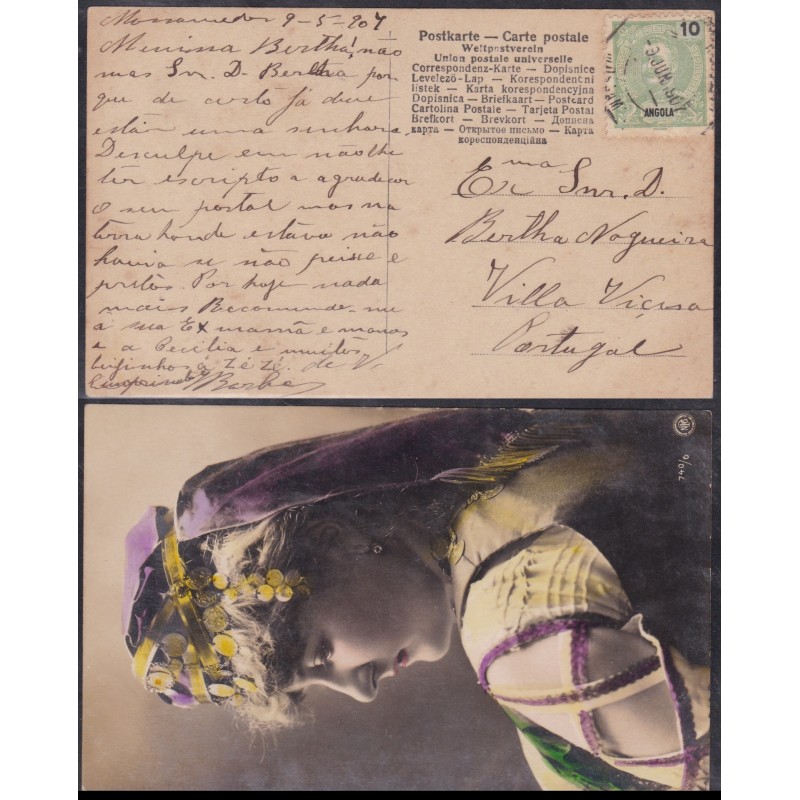 Mossamedes 9-5-907
Menina Bertha! não
mas Snr. D. Bertha por
que de certo já deve
estár uma senhora
Desculpe em não lhe
ter escripto a agradecer
o seu postal mas na
terra honde estava não
havia se não peixe e
prêtos. Por hoje nada
mais Recomende-me
á sua Ex mamã e manas
e a Cecilia e muitos
beijinhos á Zézé. de V.
Barbo
Postkarte — Carte postale
Weltpostverein
Union postale universelle
Correspondenz-Karte — Dopisnice
Levelező-Lap — Korespondentní
lístek — Karta korespondencyjna
Dopisnica — Briefkaart — Postcard
Cartolina Postale — Tarjeta Postal
Brefkort — Brevkort — Дописна
карта — Открытое письмо — Карта
кореспонденційна
10
ANGOLA
Exma Snr. D.
Bertha Nogueira
Villa Viçosa
Portugal
740/6